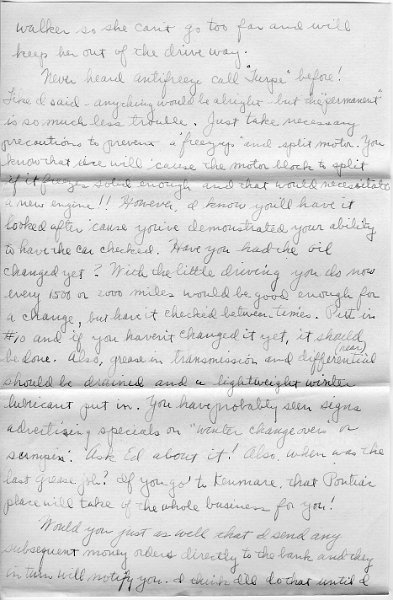 walker so she can't go too far and will
keep her out of the drive way.
Never heard antifreeze call "Turpe" before!
Like I said - anything would be alright - but the "permanent"
is so much less trouble. Just take necessary
precautions to prevent a "freezup" and split motor. You
know that ice will 'cause the motor block to split
if it freezes solid enough and that would necessitate
a new engine!! However, I know you'll have it
looked after 'cause you've demonstrated your ability
to have the car checked. Have you had the oil
changed yet? With the little driving you do now
every 1500 or 2000 miles would be good enough for
a change, but have it checked between times. Put in
#10 and if you haven't changed it yet, it should
be done. Also, grease in transmission and differential (rear)
should be drained and a lightweight winter
lubricant put in. You have probably seen signs
advertising specials on "winter changeovers" or
. Ask Ed about it! Also, when was the
last grease job? If you go to Kenmare, that Pontiac
place will take of the whole business for you!
Would you just as well that I send any
subsequent money orders directly to the bank and they
in turn will notify you. I think I'll do that until I